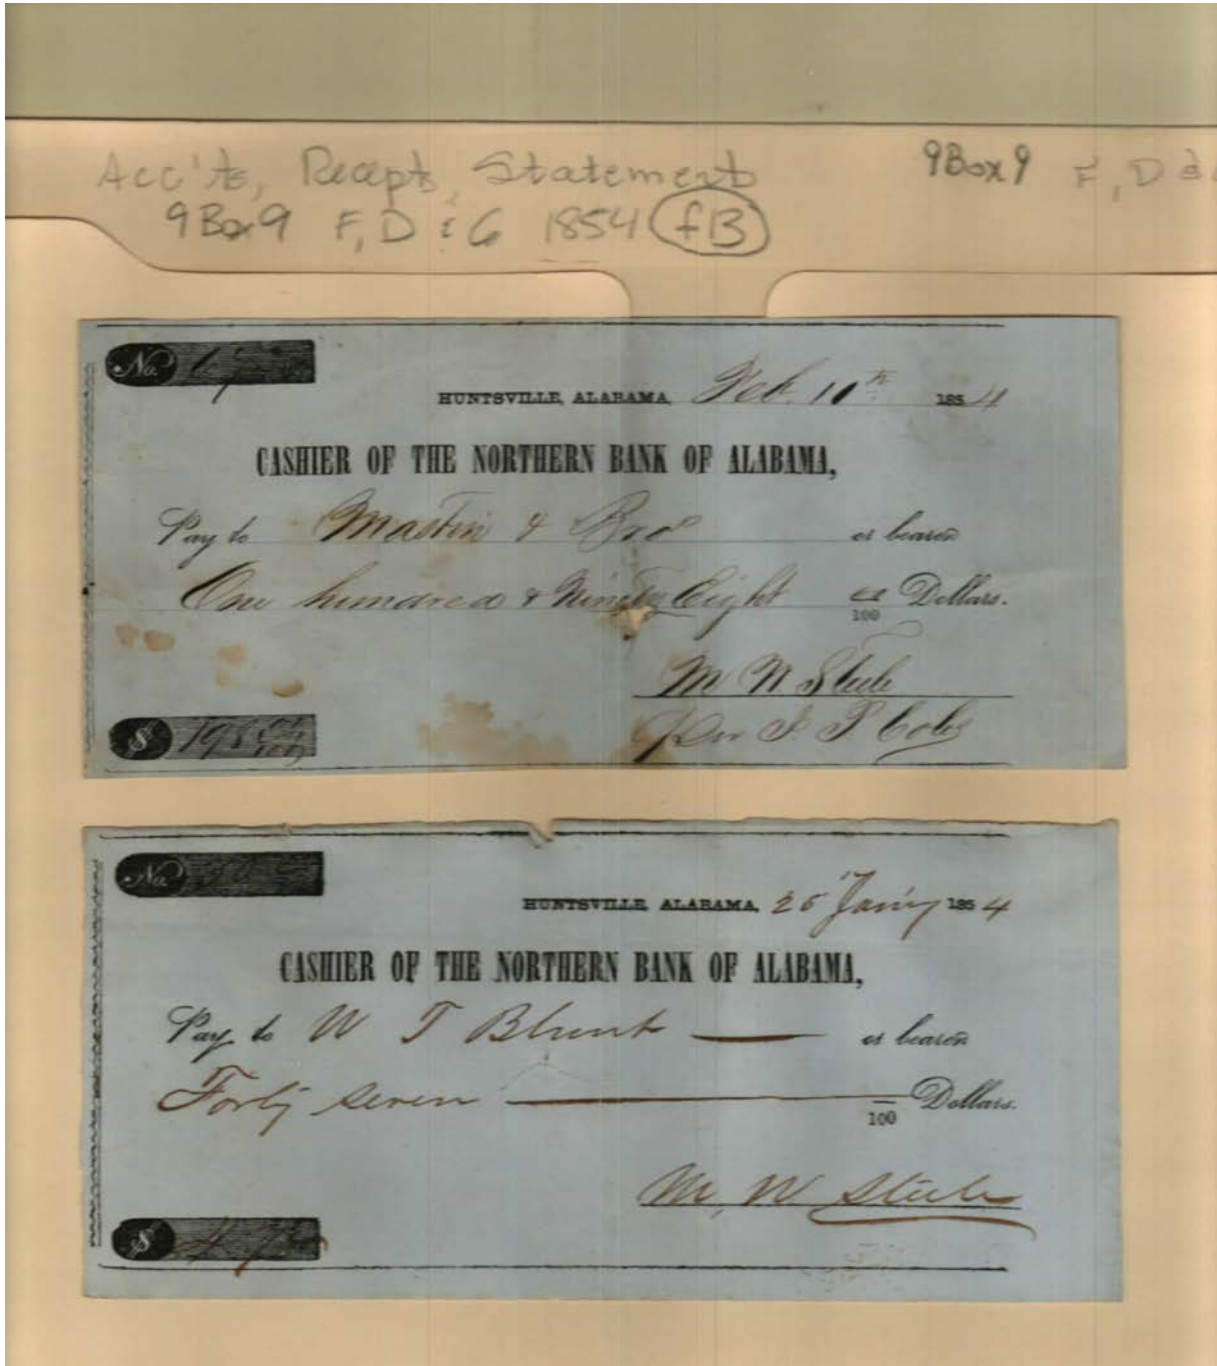 Acc'ts, Recepts, Statement
9Box9 F, D & G 1854 f13
9Box9 F, D &
No.
HUNTSVILLE, ALABAMA, Feb. 10th 1854
CASHIER OF THE NORTHERN BANK OF ALABAMA,
Pay to Mastin & Bro or bearer
One hundred & Ninety Eight 00/100 Dollars.
M W Steele
Per J P Coles
$ 198 00/100
No.
HUNTSVILLE, ALABAMA, 25 Jan'y 1854
CASHIER OF THE NORTHERN BANK OF ALABAMA,
Pay to W T Blunt or bearer
Forty seven /100 Dollars.
M. W Steele
$ 47